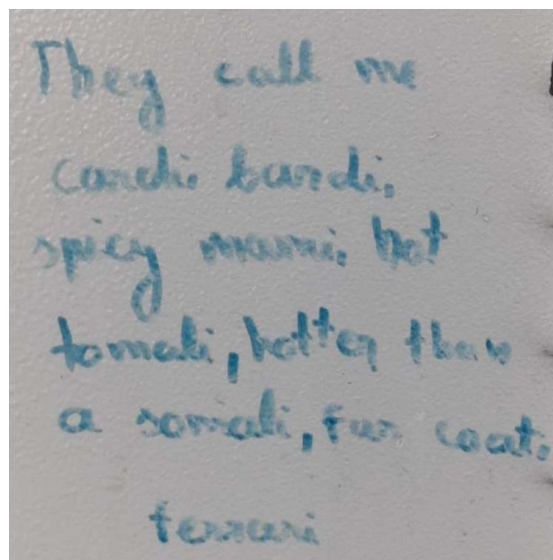 They call me
cardi bardi,
spicy mami, hot
tomali, hotter than
a somali, fur coat,
ferrari